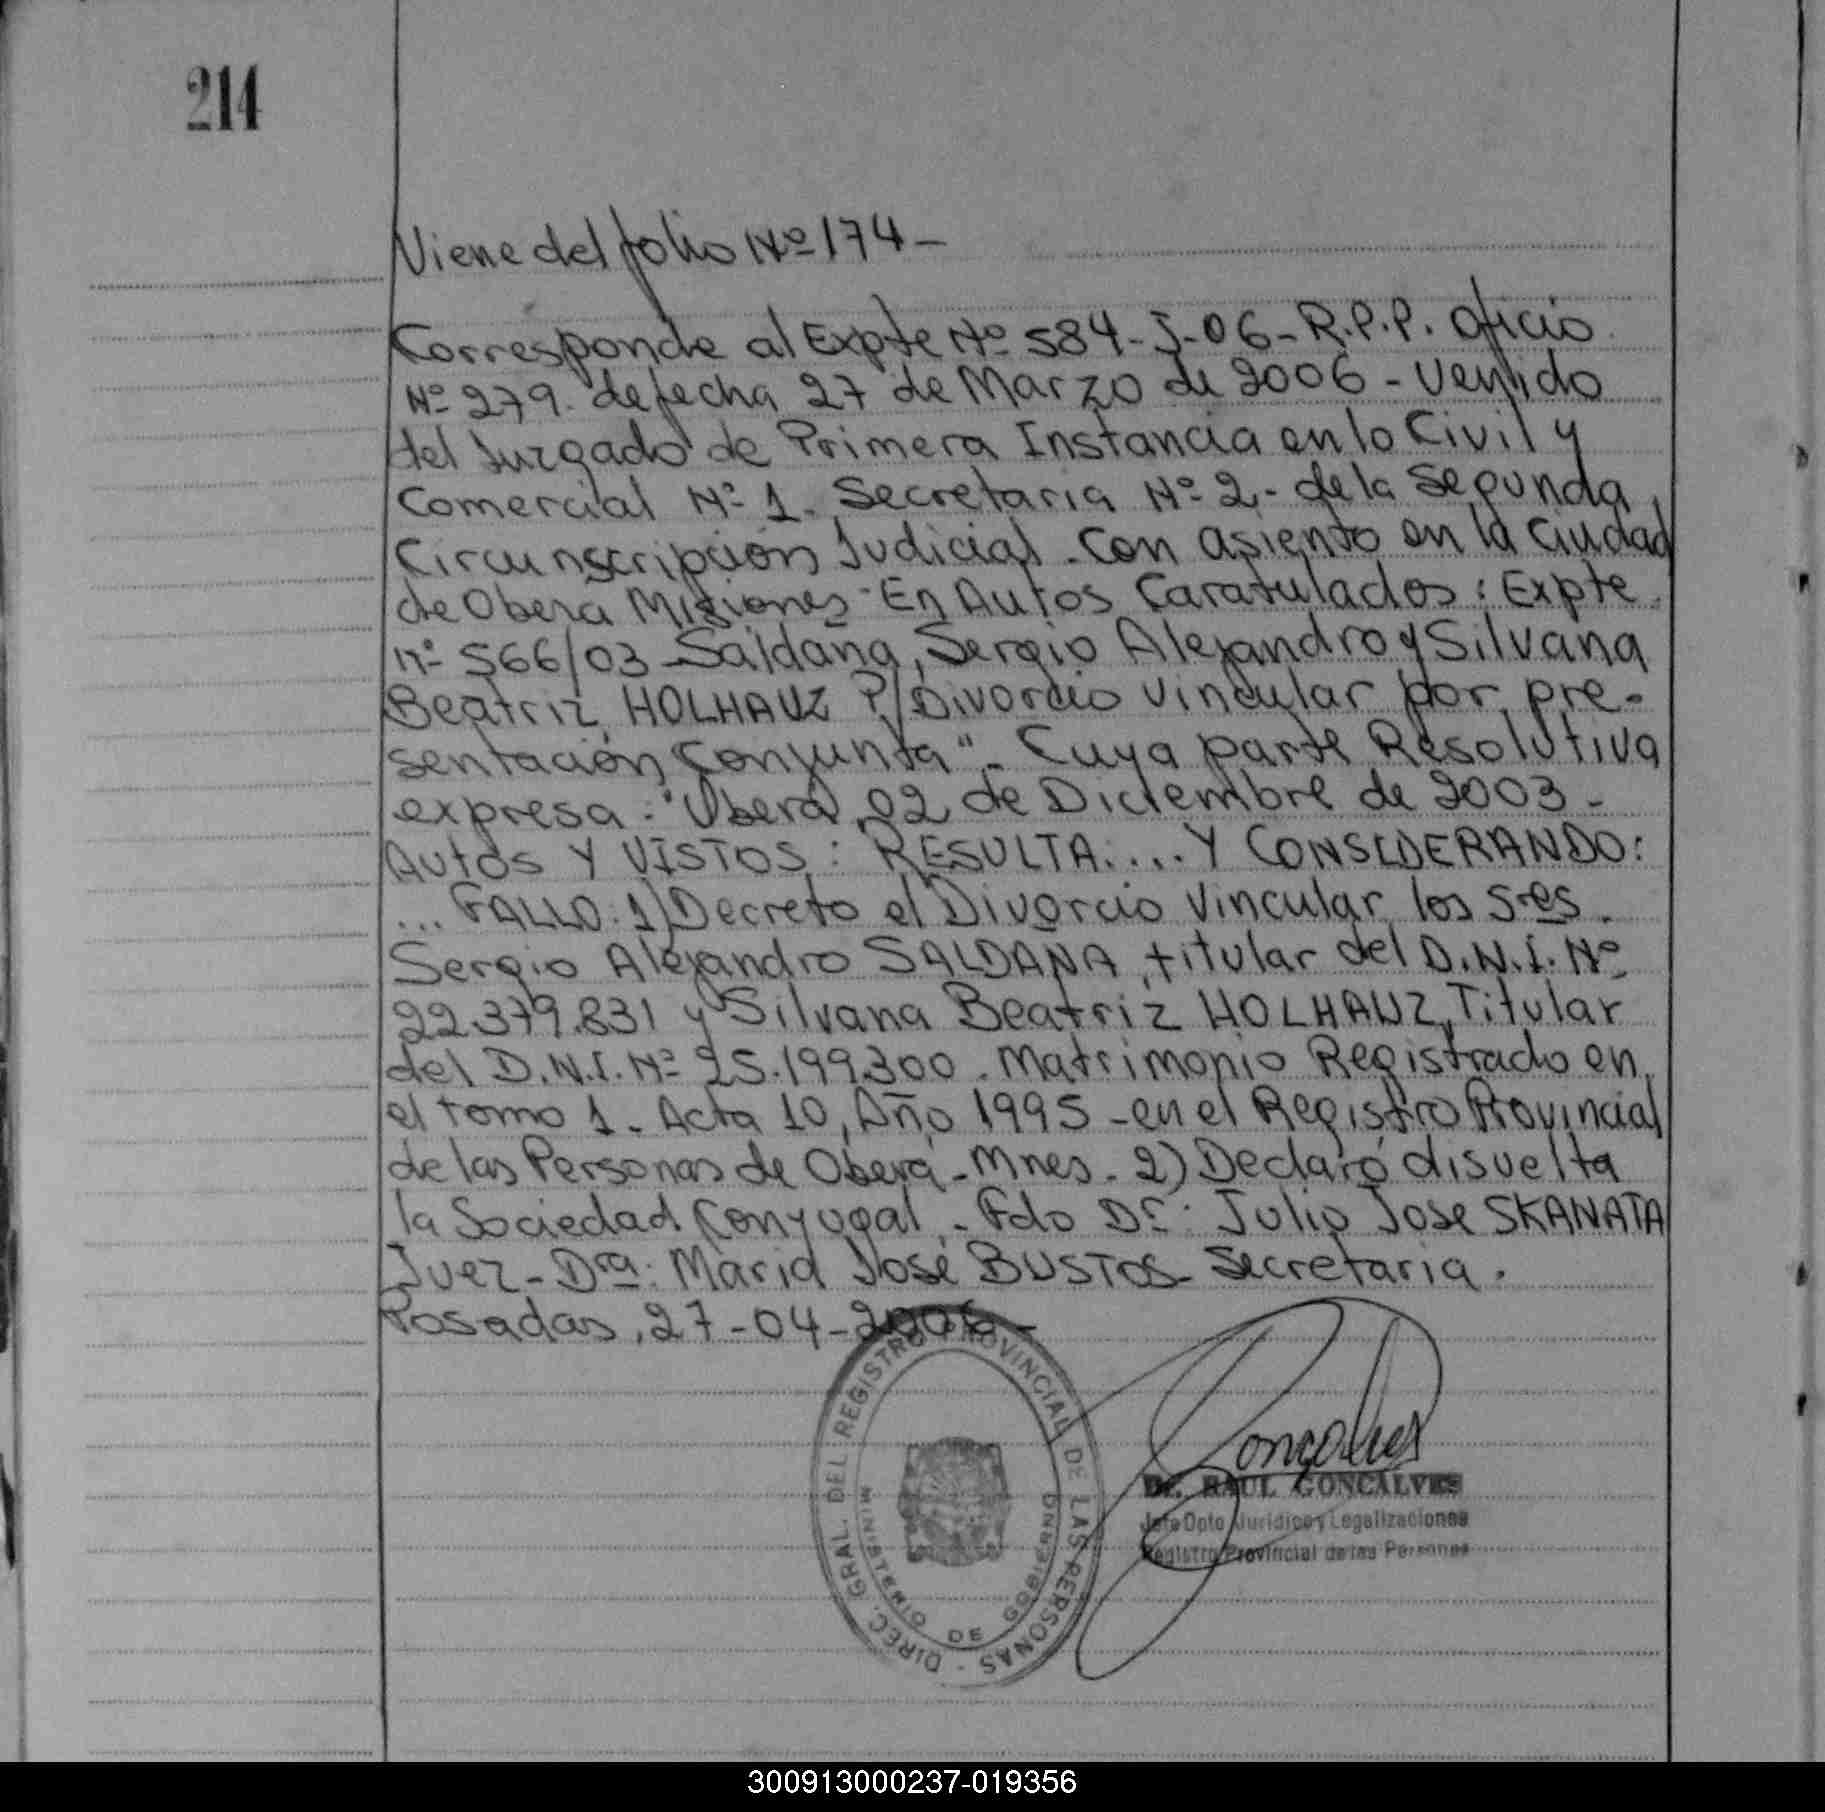 214
Viene del folio Nº 174 -
Corresponde al Expte Nº 584-J-06-R.P.P. oficio
Nº 279. de fecha 27 de Marzo de 2006 - venido
del Juzgado de Primera Instancia en lo Civil y
Comercial Nº 1. Secretaria Nº 2 - de la Segunda
Circunscripción Judicial. Con asiento en la Ciudad
de Obera Misiones - En Autos Caratulados: Expte
nº 566/03 - Saldaña, Sergio Alejandro y Silvana
Beatriz HOLHAUZ P/Divorcio vincular por pre-
sentación Conjunta". Cuya parte Resolutiva
expresa: "Obera, 02 de Diciembre de 2003 -
Autos Y VISTOS: RESULTA.... Y CONSIDERANDO:
... FALLO: 1) Decreto el Divorcio Vincular los Sres.
Sergio Alejandro SALDAÑA, titular del D.N.I. Nº
22.379.831 y Silvana Beatriz HOLHAUZ, Titular
del D.N.I. Nº 25.199.300. Matrimonio Registrado en
el tomo 1. Acta 10, Año 1995 - en el Registro Provincial
de las Personas de Oberá - Mnes. 2) Declaro disuelta
la Sociedad Conyugal. Fdo Dr: Julio Jose SKANATA
Juez - Dra: Maria José BUSTOS - Secretaria.
Posadas, 27-04-2006 -
DIREC. GRAL. DEL REGISTRO PROVINCIAL DE LAS PERSONAS -
MINISTERIO DE GOBIERNO
Goncalves
Dr. RAUL GONCALVES
Jefe Dpto Juridico y Legalizaciones
Registro Provincial de las Personas
300913000237-019356